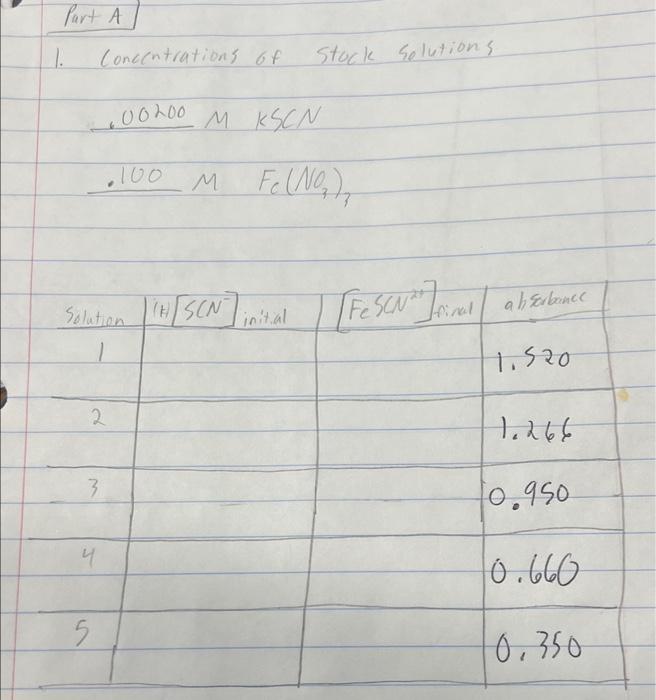 Part A
1. Concentrations of Stock Solutions
.00200 M KSCN
.100 M Fe(NO3)3
Solution (H) [SCN-] initial [FeSCN2+] final absorbance
1 1.520
2 1.266
3 0.950
4 0.660
5 0.350